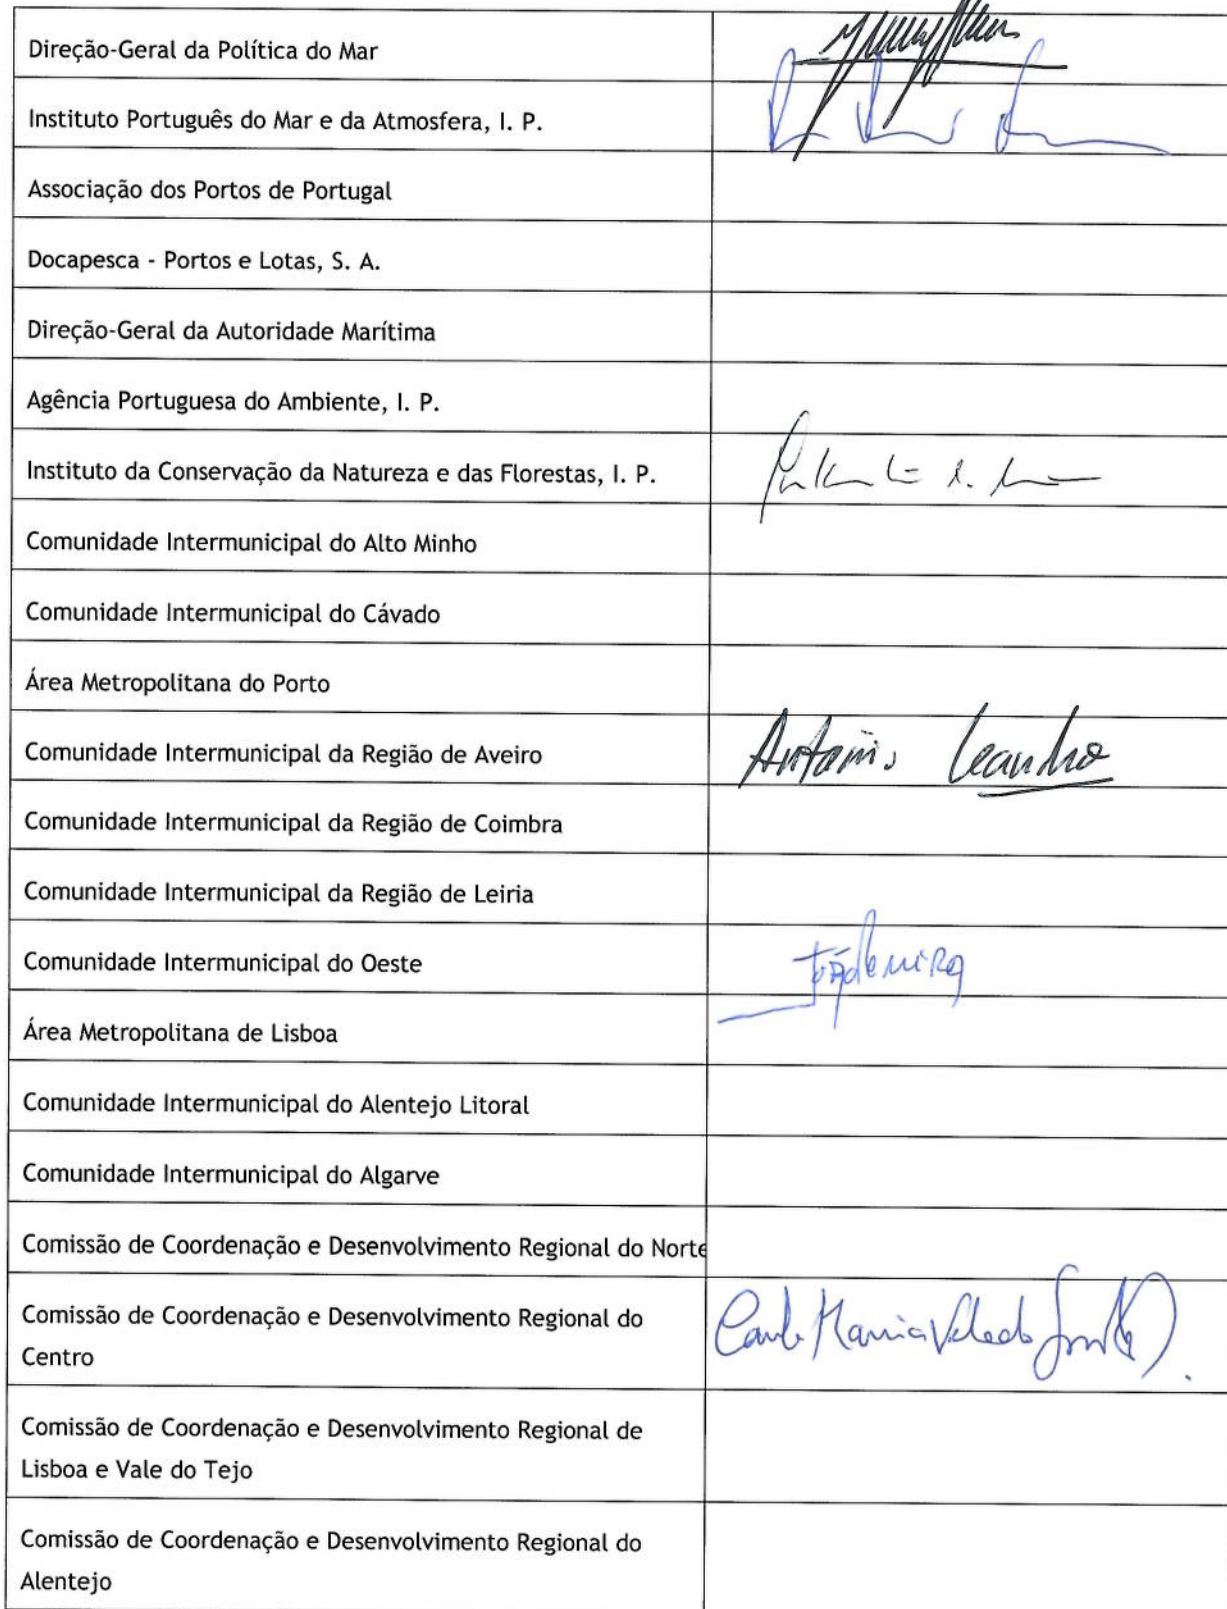 Direção-Geral da Política do Mar
Instituto Português do Mar e da Atmosfera, I. P.
Associação dos Portos de Portugal
Docapesca - Portos e Lotas, S. A.
Direção-Geral da Autoridade Marítima
Agência Portuguesa do Ambiente, I. P.
Instituto da Conservação da Natureza e das Florestas, I. P.
Comunidade Intermunicipal do Alto Minho
Comunidade Intermunicipal do Cávado
Área Metropolitana do Porto
Comunidade Intermunicipal da Região de Aveiro
António Leandro
Comunidade Intermunicipal da Região de Coimbra
Comunidade Intermunicipal da Região de Leiria
Comunidade Intermunicipal do Oeste
Área Metropolitana de Lisboa
Comunidade Intermunicipal do Alentejo Litoral
Comunidade Intermunicipal do Algarve
Comissão de Coordenação e Desenvolvimento Regional do Norte
Comissão de Coordenação e Desenvolvimento Regional do
Centro
Maria
Comissão de Coordenação e Desenvolvimento Regional de
Lisboa e Vale do Tejo
Comissão de Coordenação e Desenvolvimento Regional do
Alentejo